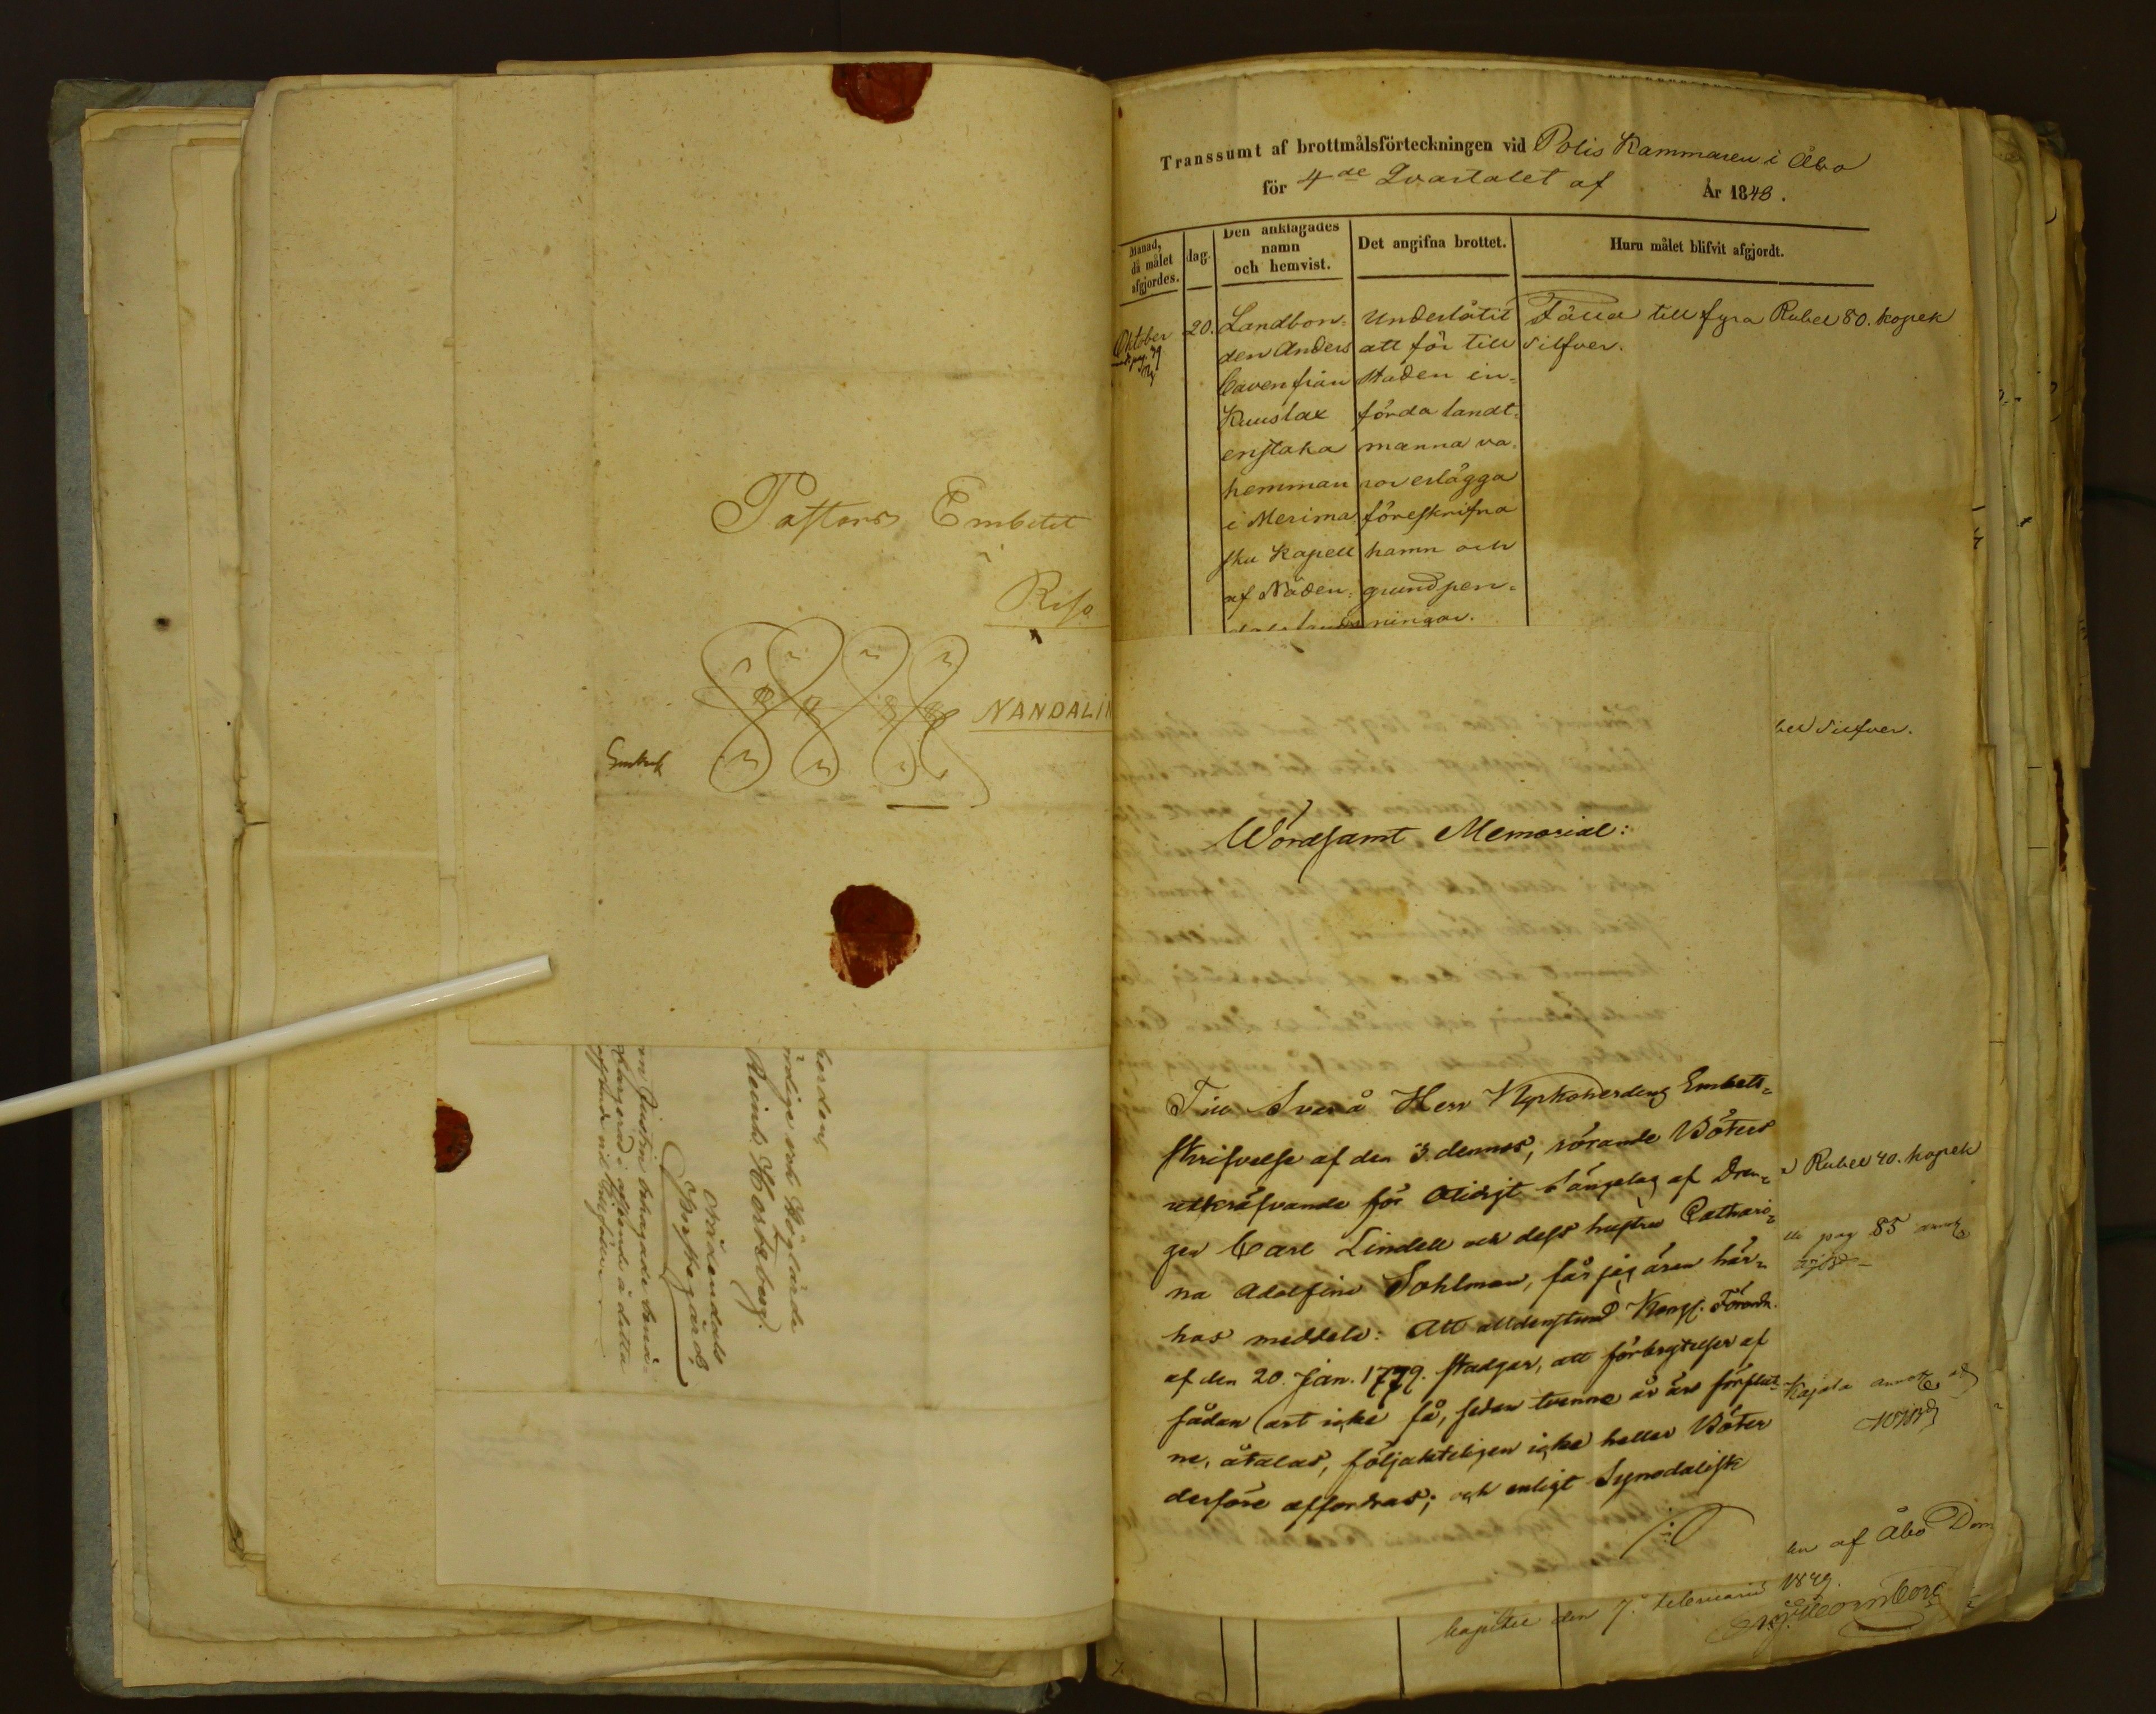 Pastors Embetet
i
NANDALI
herdens
Nådendals
Prestegård
Transsumt af brottmålsförteckningen vid Polis Kammaren i Åbo
för 4de Qvartalet af År 1848.
Månad, då målet afgjordes.
dag.
Den anklagades namn och hemvist.
Det angifna brottet.
Huru målet blifvit afgjordt.
Oktober
20.
Landbon-
den Anders
Caven från
Kuuslax
enstaka
hemman
i Merima
sku Kapell
af Nåden-
Underlåtit
att för till
staden in-
förda landt-
manna va-
ror erlägga
föreskrifna
hamn och
grundpen-
ningar.
Fälld till fyra Rubel 80. kopek
silfver.
bel silfver.
Wördsamt Memorial:
Till Svar å Herr Kyrkoherdens Embets-
skrifvelse af den 3. dennes, rörande Böters
utkräfvande för otidigt Sängelag af Dren-
gen Carl Lindell och dess hustru Cathari-
na Adolfina Sohlman, får jag äran här-
hos meddela: Att alldenstund Kongl. Förordn.
af den 20. Jan. 1779. stadgar, att förbrytelser af
sådan art icke få, sedan tvenne år äro förflut-
ne, åtalas, följakteligen icke heller Böter
derföre affordras; och enligt Synodalisk
Rubel 40. kopek
pag 85
en af Åbo Dom
kapitel den 7. Februarii 1849.